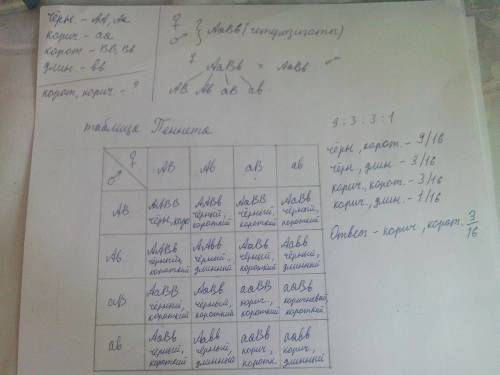 чёрн - АА, Аа
корич - аа
корот - ВВ, Вв
длин - вв
корот, корич. - ?
♀
♂ } АаВв (гетерозиготы)
♀ АаВв × АаВв ♂
АВ Ав аВ ав
таблица Пеннета
♀ ♂ АВ Ав аВ ав
АВ
ААВВ чёрн, коро
ААВв чёрный, короткий
АаВВ чёрный, короткий
АаВв чёрный, короткий
Ав
ААВв чёрный, короткий
ААвв чёрный, длинный
АаВв чёрный, короткий
Аавв чёрный, длинный
аВ
АаВВ чёрный, короткий
АаВв чёрный, короткий
ааВВ корич., короткий
ааВв коричневый, короткий
ав
АаВв чёрный, короткий
Аавв чёрный, длинный
ааВв корич, коротк.
аавв корич., длинный
9 : 3 : 3 : 1
чёрн, корот. - 9/16
чёрн, длин - 3/16
корич., корот. - 3/16
корич., длин - 1/16
Ответ - корич, корот. 3/16